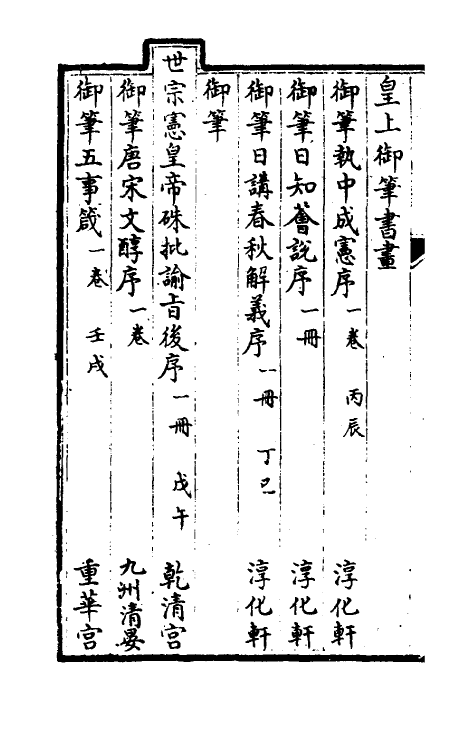 皇上御筆書畫
御筆執中成憲序一卷 丙辰 淳化軒
御筆日知薈說序一冊 淳化軒
御筆日講春秋解義序一冊 丁巳 淳化軒
御筆
世宗憲皇帝硃批諭旨後序一冊 戊午 乾清宮
御筆唐宋文醇序一卷 九州清晏
御筆五事箴一卷 壬戌 重華宮